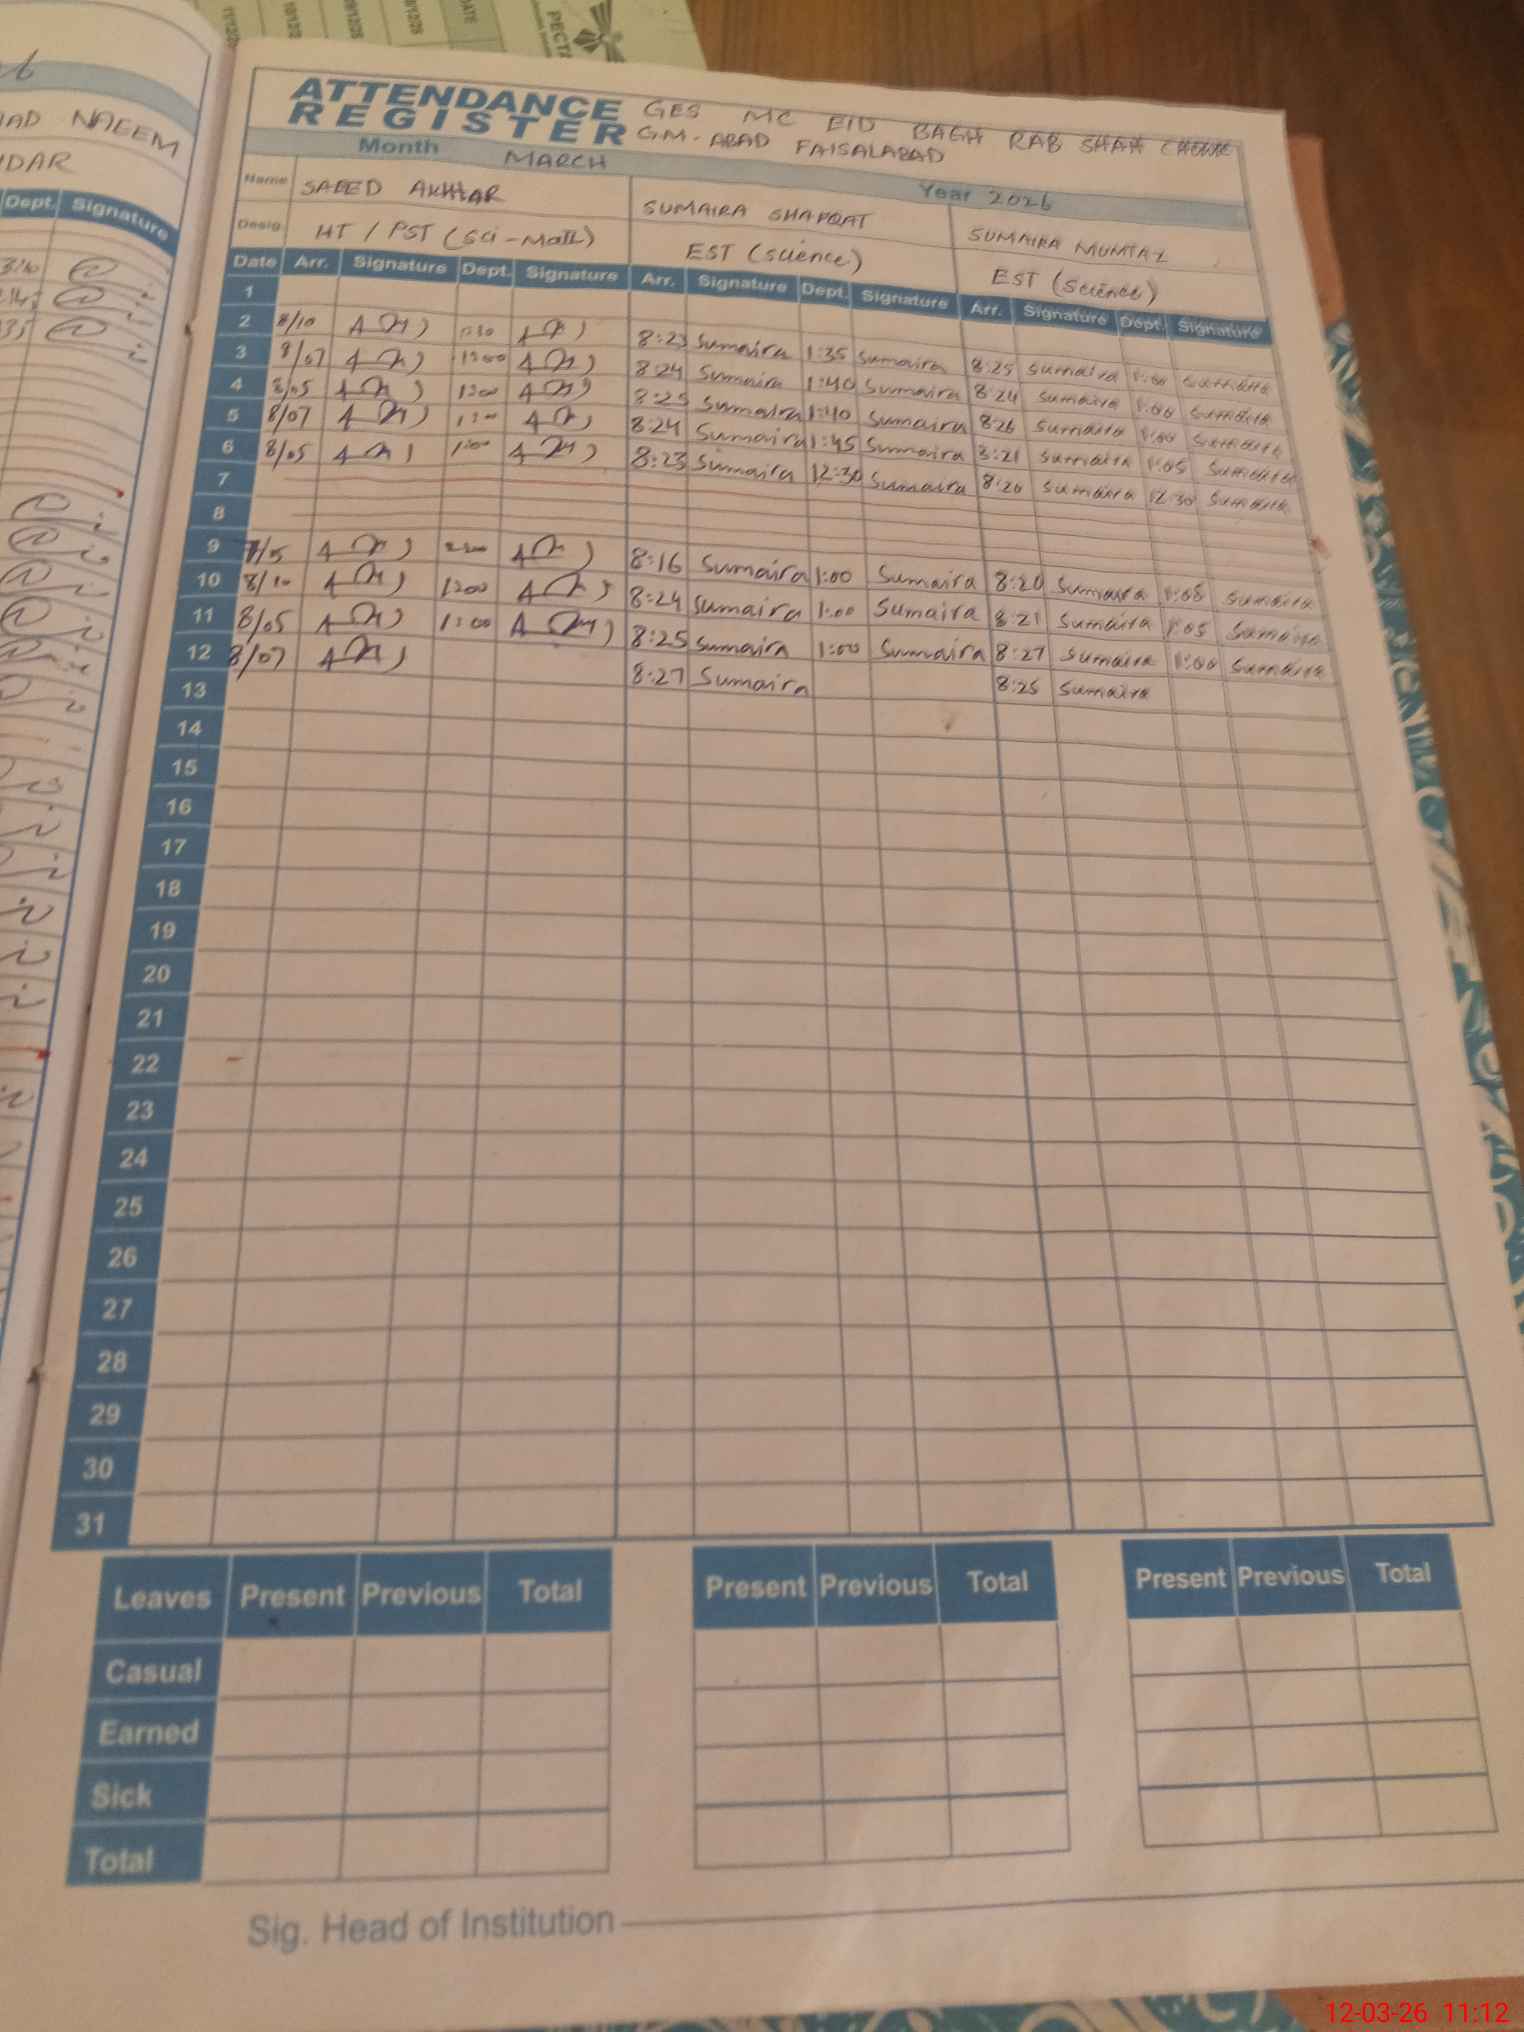 ATTENDANCE REGISTER
GES MC EID BAGH RAB SHAH
GM-ABAD FAISALABAD
Month MARCH Year 2026
Name SAEED AKHTAR SUMAIRA SHAFQAT SUMAIRA MUMTAZ
Desig. HT / PST (Sci-Math) EST (science) EST (Science)
Date Arr. Signature Dept. Signature Arr. Signature Dept. Signature Arr. Signature Dept. Signature
1
2 8/10 8:23 Sumaira 1:35 Sumaira 8:25 Sumaira 1:00 Sumaira
3 8/07 1300 8:24 Sumaira 1:40 Sumaira 8:24 Sumaira 1:00 Sumaira
4 8/05 1300 8:25 Sumaira 1:40 Sumaira 8:26 Sumaira 1:00 Sumaira
5 8/07 8:24 Sumaira 1:45 Sumaira 8:21 Sumaira 1:05 Sumaira
6 8/05 8:23 Sumaira 12:30 Sumaira 8:20 Sumaira 12:30 Sumaira
7
8
9 8:16 Sumaira 1:00 Sumaira 8:20 Sumaira 1:05 Sumaira
10 8/10 1300 8:24 Sumaira 1:00 Sumaira 8:21 Sumaira 1:05 Sumaira
11 8/05 1300 8:25 Sumaira 1:00 Sumaira 8:27 Sumaira 1:00 Sumaira
12 8/07 8:27 Sumaira 8:25 Sumaira
13
14
15
16
17
18
19
20
21
22
23
24
25
26
27
28
29
30
31
Leaves Present Previous Total Present Previous Total Present Previous Total
Casual
Earned
Sick
Total
Sig. Head of Institution
NAEEM
Dept. Signature
PECTA
DATE
12-03-26 11:12